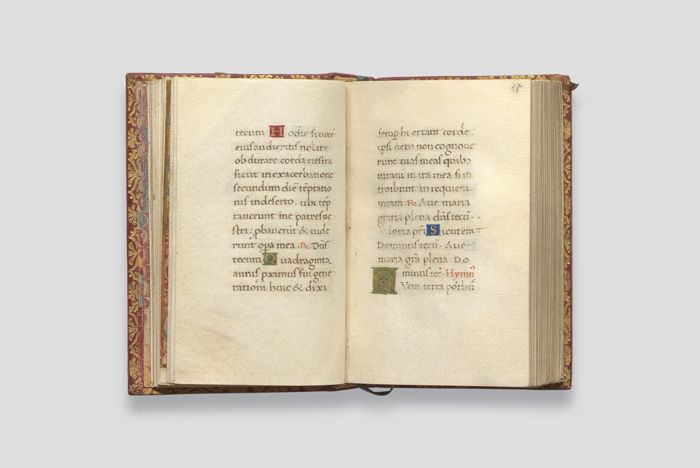 tecum. Hodie si uocē
eius audieritis nolite
obdurare corda uestra
sicut in exacerbatione
secundum diē tēptatio
nis in deserto. ubi tēp
tauerunt me patres ue
stri: pbauerūt & uide
runt opa mea. Re. Dn̄s
tecum. Quadraginta
annis pximus fui gene
rationi huic & dixi
18
semp hi errant corde.
ipsi uero non cognoue
runt uias meas quibꝫ
iuraui in ira mea si in
troibunt in requiem
meam. Re. Aue maria
gratia plena dn̄s tecū.
Gloria pri Sicut erat
Dominus tecū. Aue
maria grā plena. Do
minus tec. Hymn
Quem terra pōthus